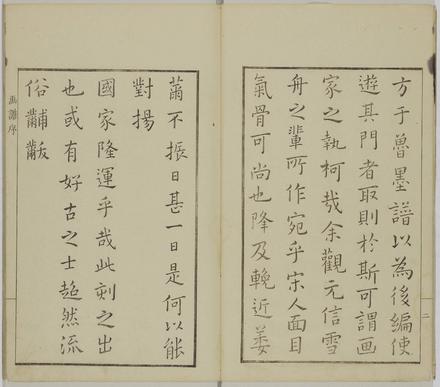 方于魯墨譜以為後編使
遊其門者取則於斯可謂画
家之執柯哉余觀元信雪
舟之輩所作宛乎宋人面目
氣骨可尚也降及輓近萎
薾不振日甚一日是何以能
對揚
國家隆運乎哉此刻之出
也或有好古之士超然流
俗黼黻
画譜序
二